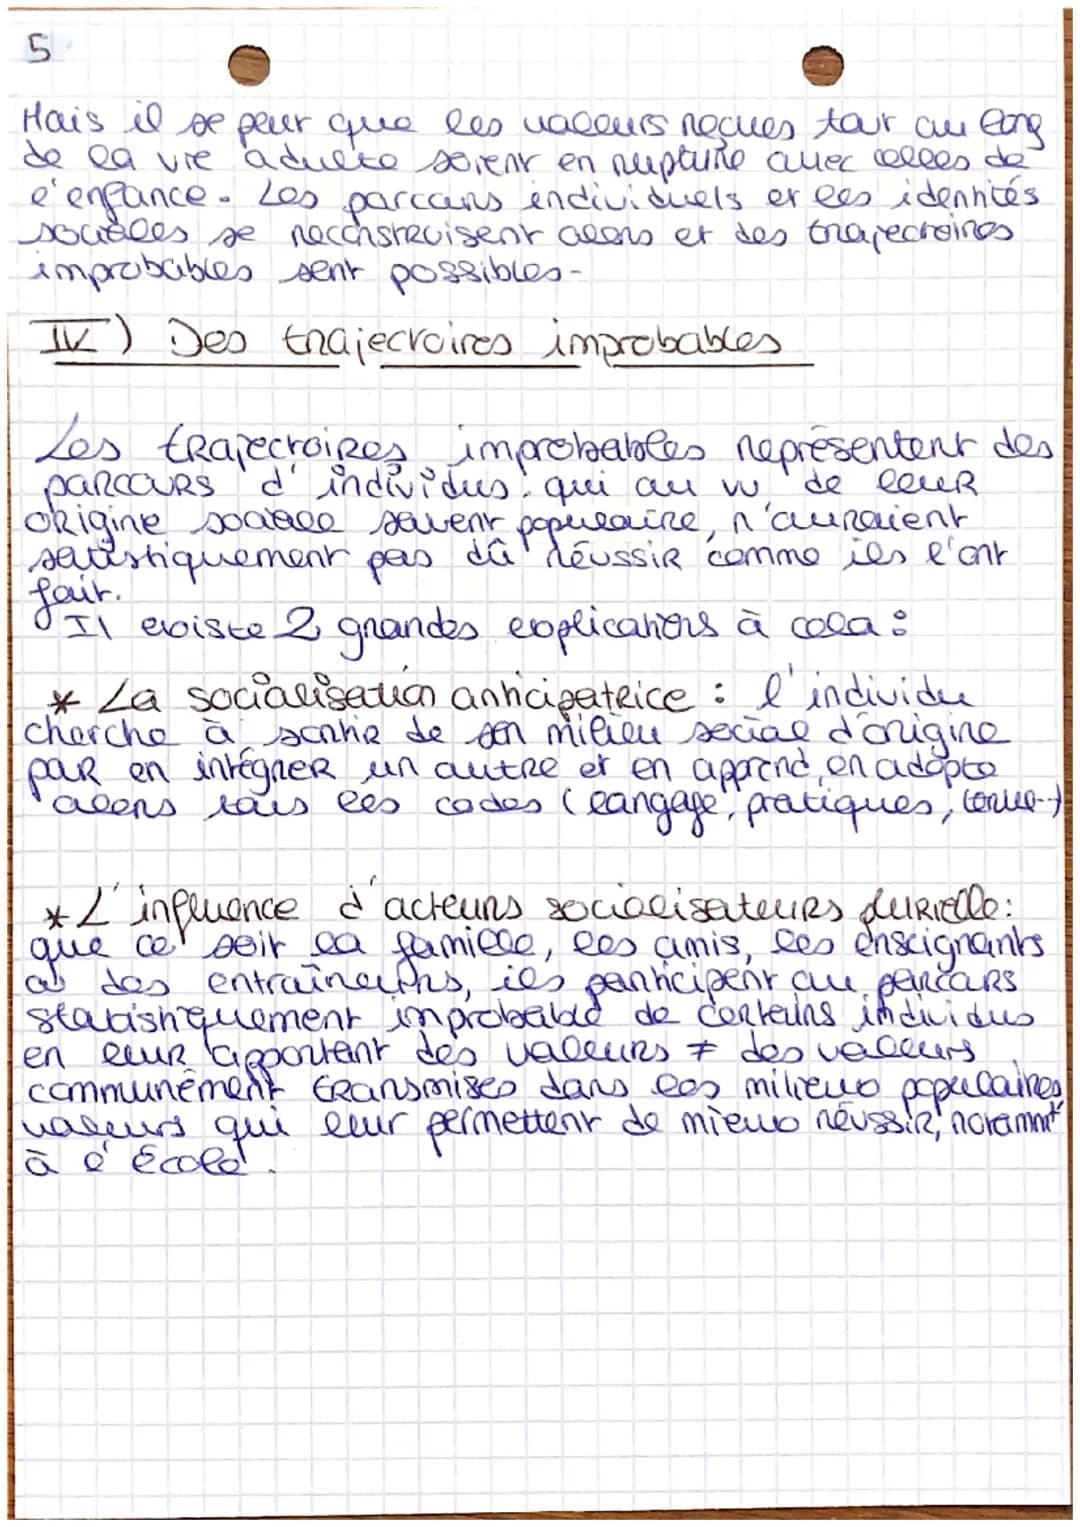 5
Mais il se peut que les valeurs reçues tout au long
de la vie adulte soient en rupture avec celles de
l'enfance. Les parcours individuels et les identités
sociales se reconstruisent alors et des trajectoires
improbables sont possibles.
IV) Des trajectoires improbables
Les trajectoires improbables représentent des
parcours d'individus qui au vu de leur
origine sociale souvent populaire, n'auraient
statistiquement pas dû réussir comme ils l'ont
fait.
Il existe 2 grandes explications à cela :
* La socialisation anticipatrice : l'individu
cherche à sortir de son milieu social d'origine
par en intégrer un autre et en apprend, en adopte
alors tous les codes (langage, pratiques, tenue..)
* L'influence d'acteurs socialisateurs plurielle :
que ce soit la famille, les amis, les enseignants
ou des entraîneurs, ils participent au parcours
statistiquement improbable de certains individus
en leur apportant des valeurs ≠ des valeurs
communément transmises dans les milieux populaires,
valeurs qui leur permettent de mieux réussir, notammt
à l'école.